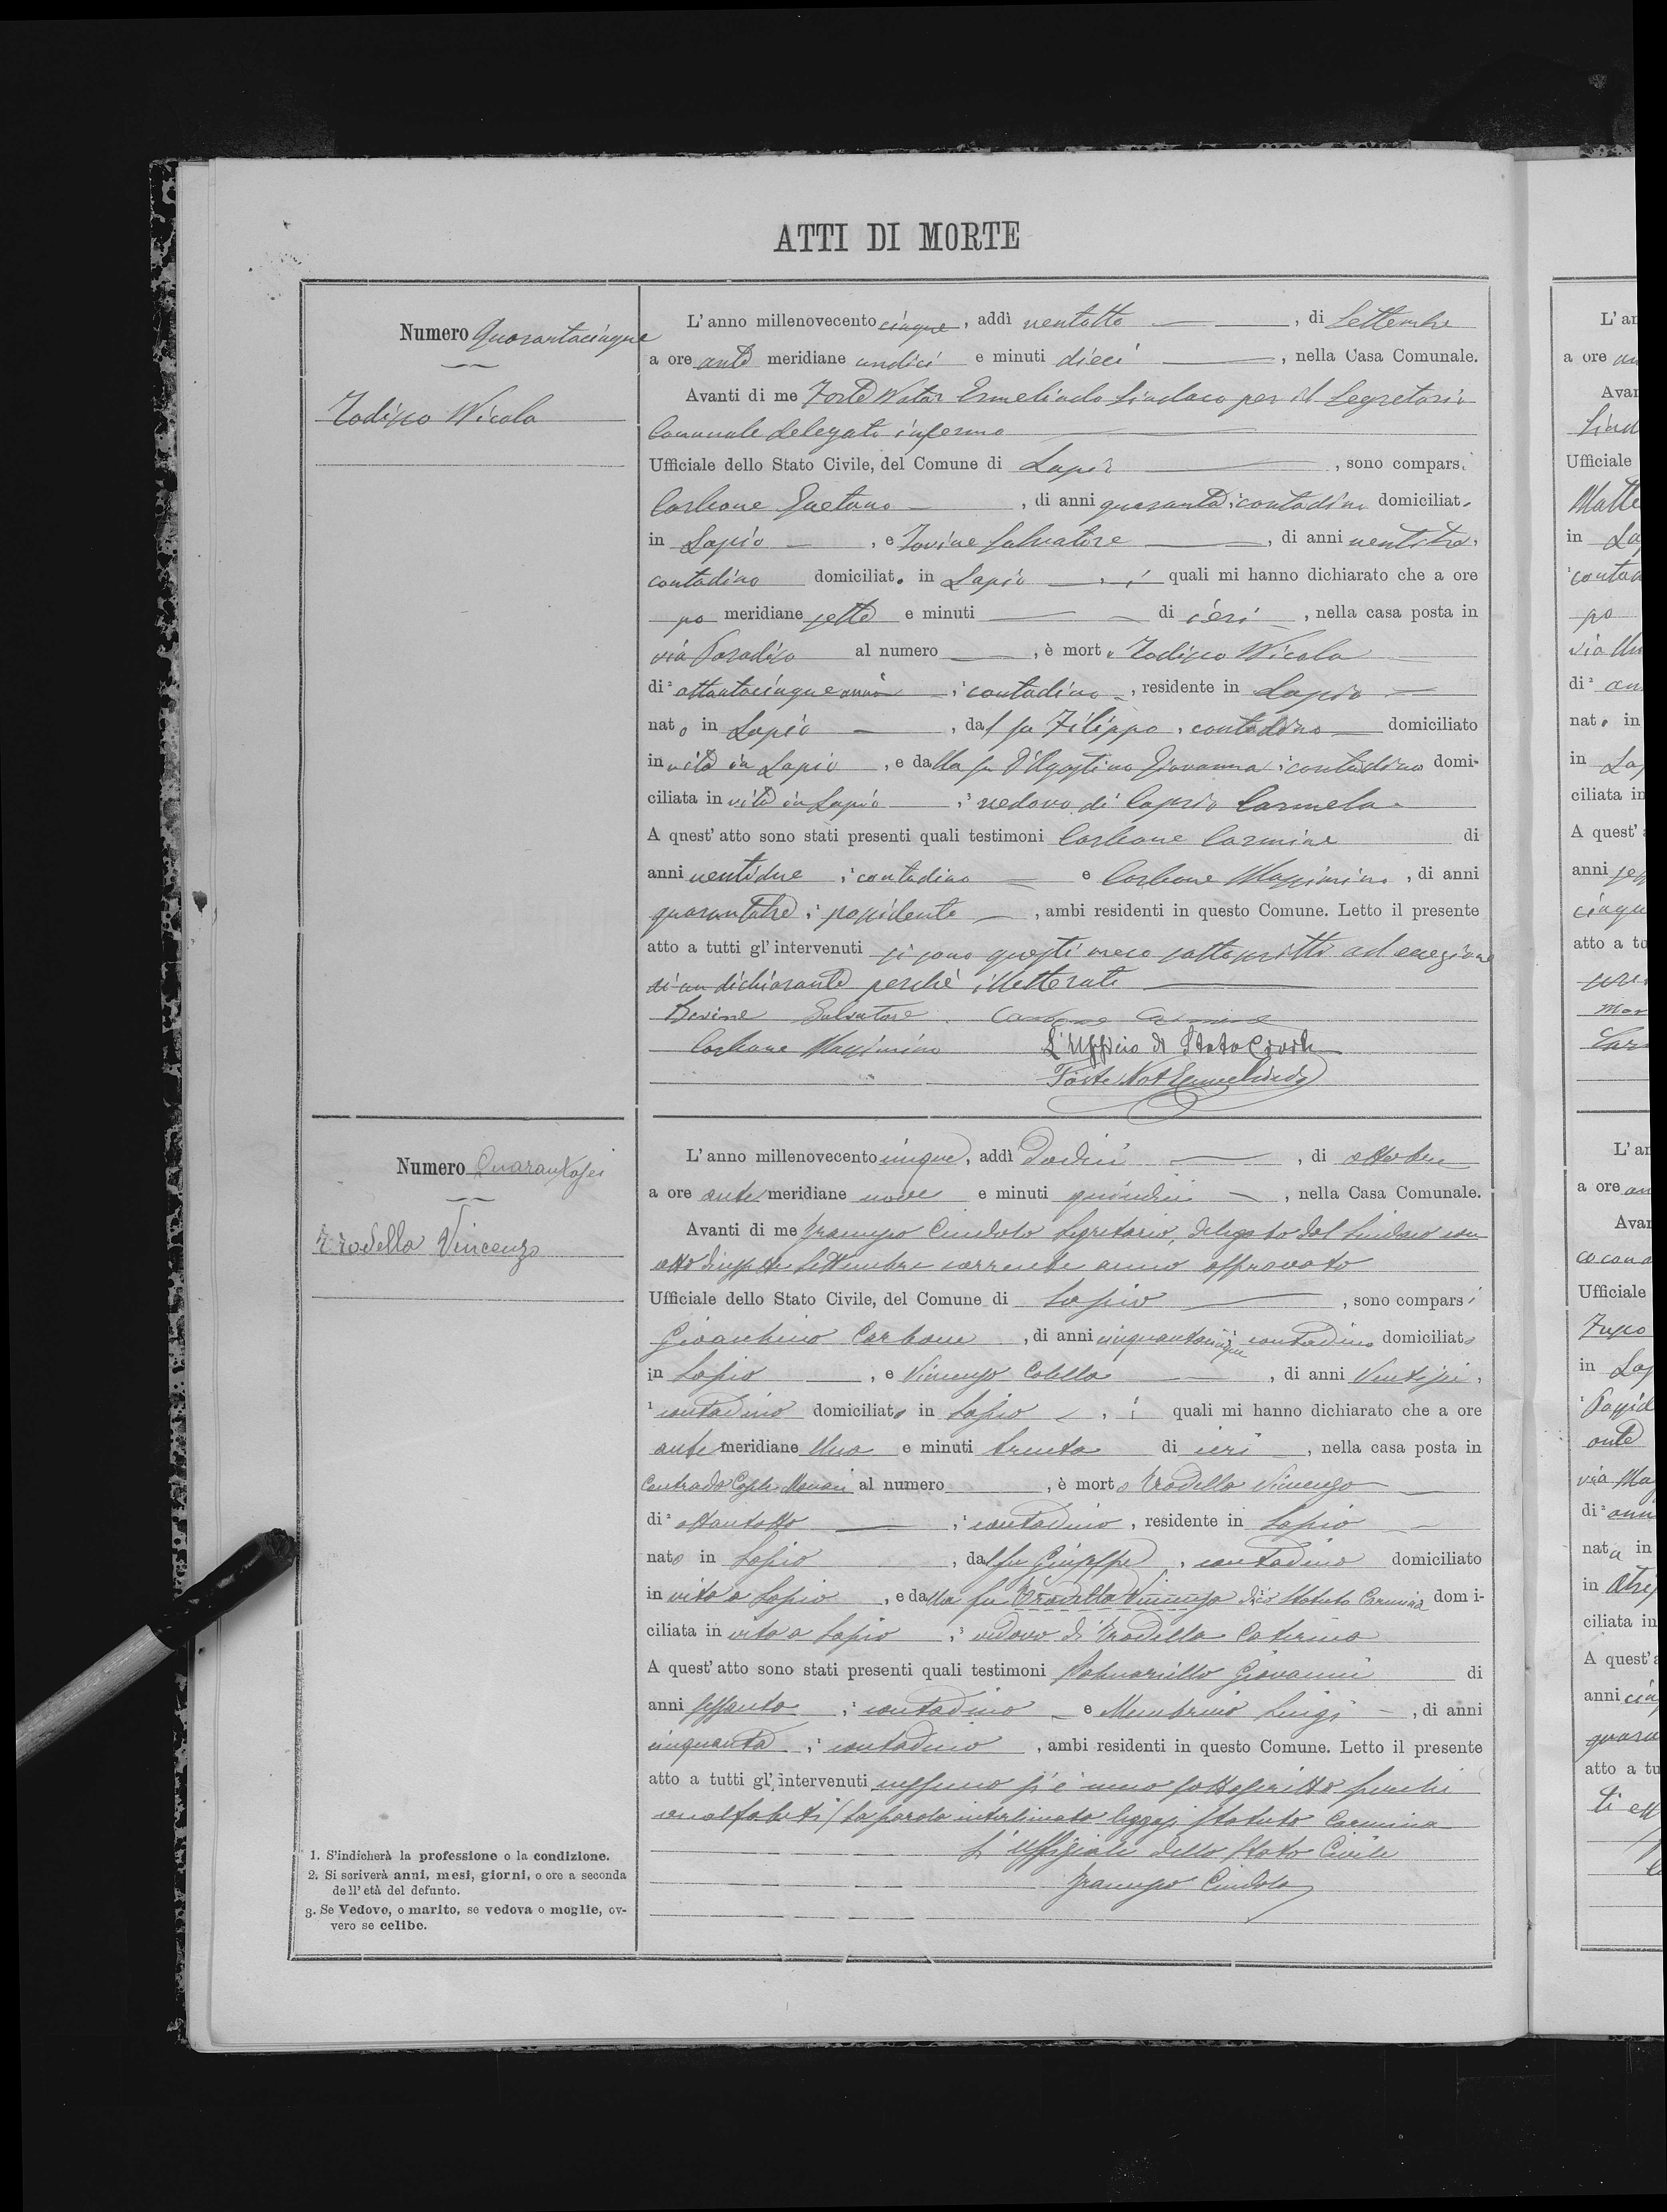 ATTI DI MORTE
Numero Quarantacinque
Todisco Nicola
L'anno millenovecento cinque, addì ventotto, di Settembre
a ore ante meridiane undici e minuti dieci, nella Casa Comunale.
Avanti di me Forte Notar Ermelindo Sindaco per il Segretario
Comunale delegato infermo
Ufficiale dello Stato Civile, del Comune di Lapio, sono comparsi
Carbone Gaetano, di anni quaranta, contadino domiciliato
in Lapio, e Iovine Salvatore, di anni ventitre,
contadino domiciliato in Lapio, i quali mi hanno dichiarato che a ore
po meridiane sette e minuti di ieri, nella casa posta in
via Paradiso al numero, è morto Todisco Nicola
di ² ottantacinque anni, contadino, residente in Lapio
nato in Lapio, dal fu Filippo, contadino domiciliato
in vita in Lapio, e dalla fu D'Agostino Giovanna, contadina domi-
ciliata in vita in Lapio, ³ vedovo di Caprio Carmela.
A quest'atto sono stati presenti quali testimoni Carbone Carmine di
anni ventidue, contadino e Carbone Massimino, di anni
quarantatre, possidente, ambi residenti in questo Comune. Letto il presente
atto a tutti gl'intervenuti si sono questi meco sottoscritti ad eccezione
di un dichiarante perchè illetterato
Iovine Salvatore Carbone Carmine
Carbone Massimino L'Ufficio di Stato Civile
Forte Not Ermelindo
Numero Quarantasei
Trodella Vincenzo
L'anno millenovecento cinque, addì Dodici, di ottobre
a ore ante meridiane nove e minuti quindici, nella Casa Comunale.
Avanti di me Francesco Cindolo Segretario, delegato dal Sindaco con
atto diciassette Settembre corrente anno approvato
Ufficiale dello Stato Civile, del Comune di Lapio, sono comparsi
Gioacchino Carbone, di anni cinquantacinque contadino domiciliato
in Lapio, e Vincenzo Colella, di anni Ventisei,
¹ contadino domiciliato in Lapio, i quali mi hanno dichiarato che a ore
ante meridiane Una e minuti trenta di ieri, nella casa posta in
Contrada al numero, è morto Trodella Vincenzo
di ² ottantotto, ¹ contadino, residente in Lapio
nato in Lapio, dal fu Giuseppe, contadino domiciliato
in vita a Lapio, e dalla fu Trodella Vincenza dico Statuto Carmina domi-
ciliata in vita a Lapio, ³ vedovo di Trodella Caterina
A quest'atto sono stati presenti quali testimoni Giovanni di
anni sessanta, contadino e Membrino Luigi, di anni
cinquanta, contadino, ambi residenti in questo Comune. Letto il presente
atto a tutti gl'intervenuti nessuno si è meco sottoscritto perchè
analfabeti / La parola interlineata leggasi Statuto Carmina
L'Uffiziale dello Stato Civile
Francesco Cindolo
1. S'indicherà la professione o la condizione.
2. Si scriverà anni, mesi, giorni, o ore a seconda
dell'età del defunto.
3. Se Vedovo, o marito, se vedova o moglie, ov-
vero se celibe.